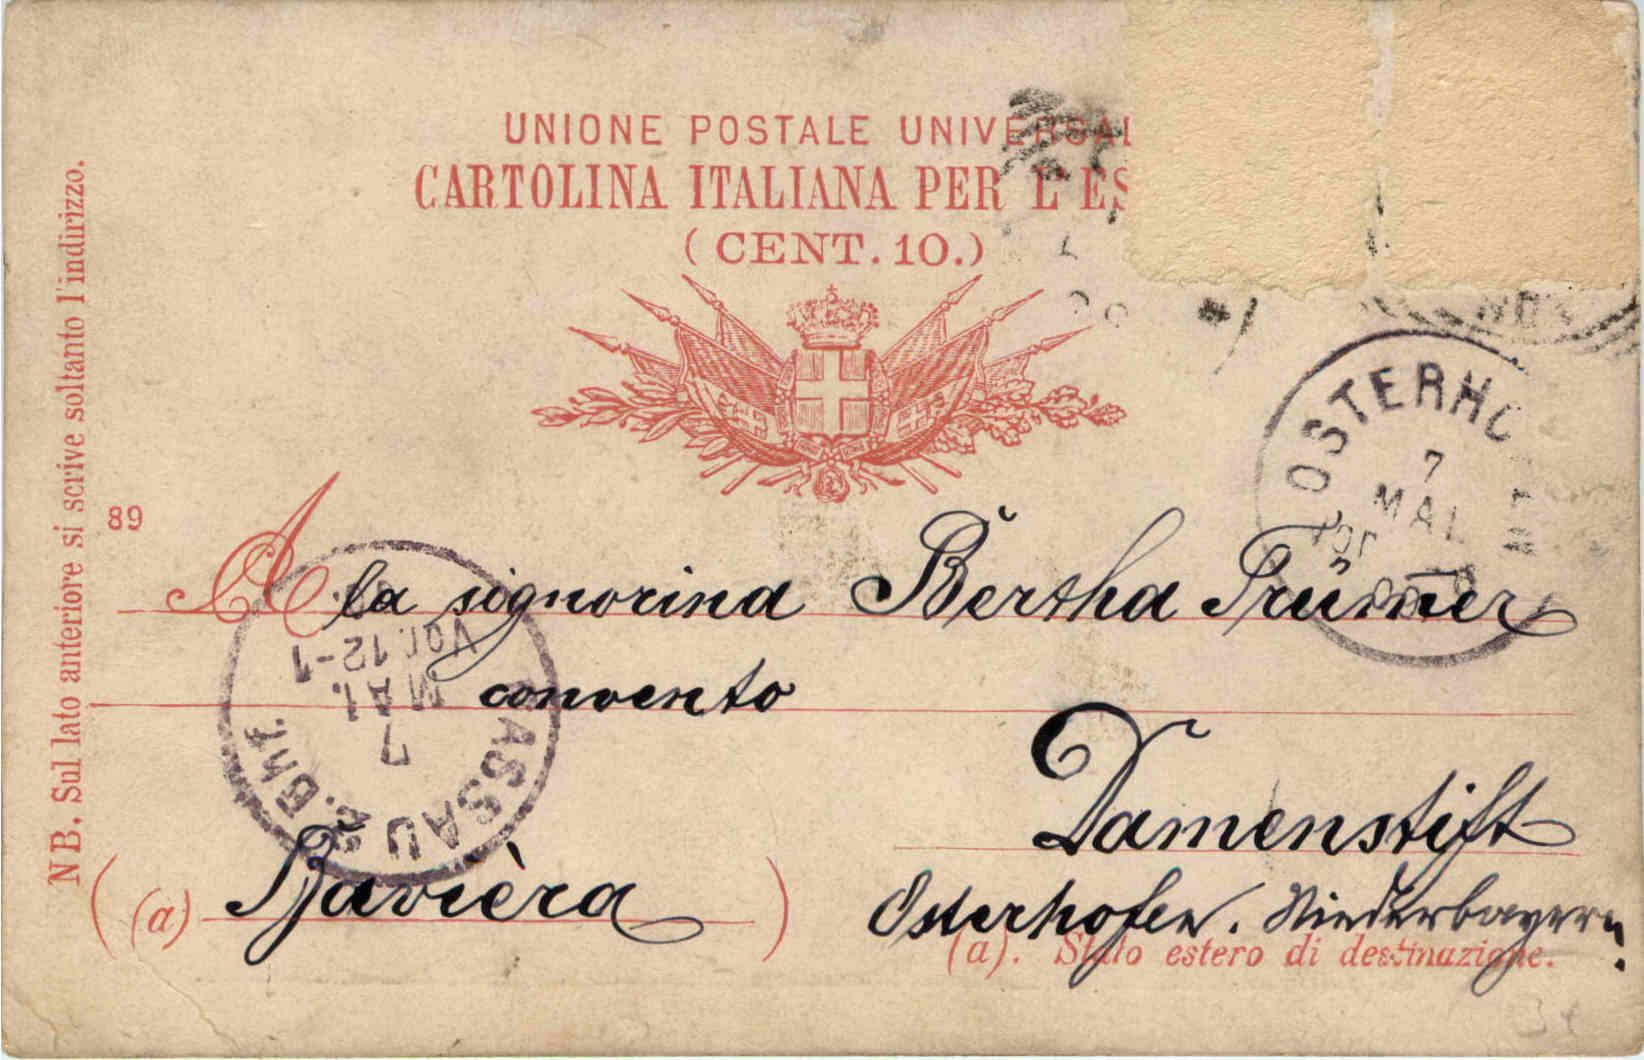 UNIONE POSTALE UNIVERSAL
CARTOLINA ITALIANA PER L'ES
(CENT. 10.)
NB. Sul lato anteriore si scrive soltanto l'indirizzo.
89
OSTERHO
7
MAI
Vor
A la signorina Bertha Prümer
convento
PASSAU 2. Bhf.
7
MAI.
Vor. 12-1
Damenstift
(a) Bavièra
Osterhofen. Niederbayern.
(a). Stato estero di destinazione.